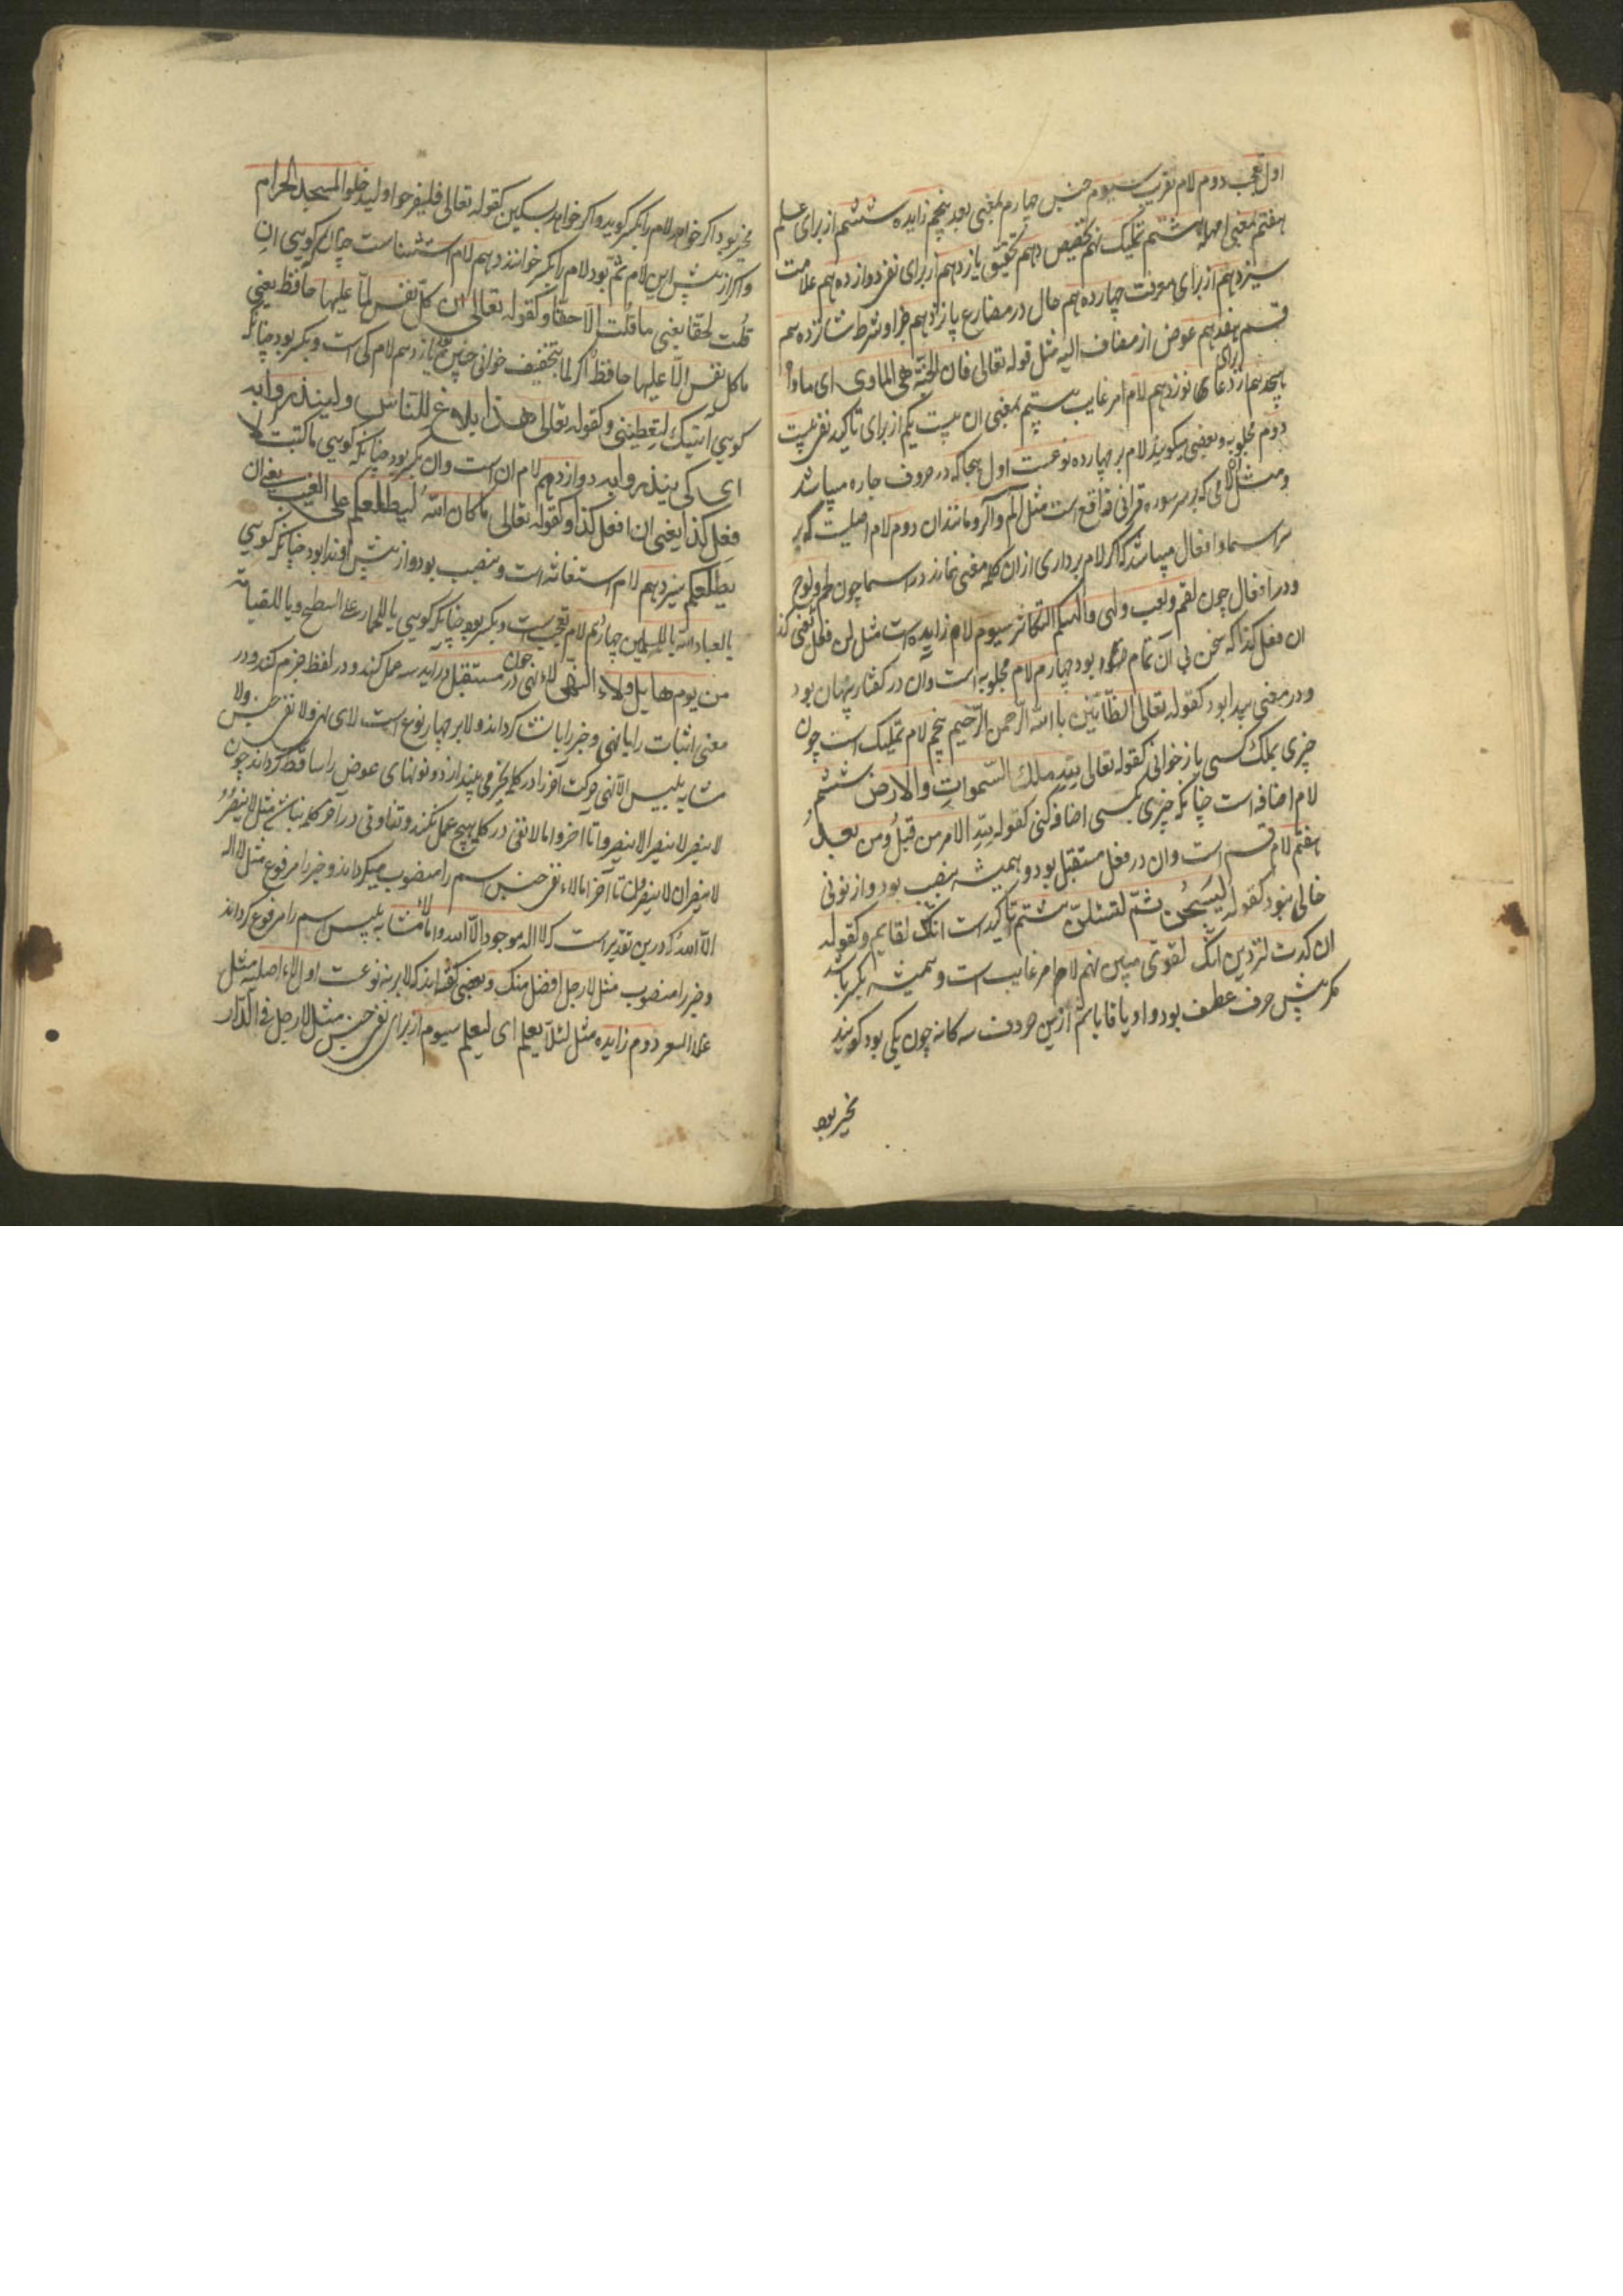 اول تعجب دوم لام تعریب سیوم جنس چهارم بمعنی بعد پنجم زایده ششم از برای علم
هفتم بمعنی امهله هشتم تملیک نهم تخصیص دهم تحقیق یازدهم از برای نفر دوازدهم علامت
سیزدهم از برای معرفت چهاردهم حال در مضارع پازدهم جزا و شرط شانزدهم
قسم هفدهم عوض از مضاف الیه مثل قوله تعالی فان الجنّة هی الماوی ای ماواه
برای دعا نوزدهم لام امر غایب بیستم بمعنی ان بیست یکم از برای تاکید نفی بیست
دوم مجلوبه و بعضی میکویند لام بر چهارده نوعست اول هجا که در حروف جاره میباشد
و مثل لامی که بر سر سوره قرانی واقع است مثل الم و الر و مانند ان دوم لام اصلیست که بر
سر اسما و افعال میباشد که اکر لام برداری از ان کلمه معنی نماند در اسما چون و لوح
و در افعال چون لقم و لعب و لهی و الهیکم التکاثر سیوم لام زایده است مثل لن فعل یعنی
ان فعل کذا که سخن بی آن تمام بود چهارم لام مجلوبه است و آن در کفتار پنهان بود
و در معنی پیدا بود کقوله تعالی الظانّین بالله الرّحمن الرّحیم پنجم لام تملیک است چون
چیزی بملک کسی باز خوانی کقوله تعالی لِلّهِ ملك السّموات والارض ششم
لام اضافه است چنانکه چیزی بکسی اضافه کنی کقوله لِلّهِ الامر من قبلُ ومن بعدُ
هفتم لام قسم است و ان در فعل مستقبل بود و همیشه بنصب بود و از نونی
خالی نبود کقوله لیُسجُنن ثمّ لتسئلنّ هشتم تاکید است انک لقایم و کقوله
ان کدت لتردین انک لقوی مبین نهم لام امر غایب است و همیشه بکسر باشد
مکر پیش حرف عطف بود واو یا فا یا ثم ازین حروف سه کانه چون یکی بود کویند
مخیر بود
مخیر بود اکر خواهد لام را بکسر کوید و اکر خواهد بسکین کقوله تعالی فلیفرحوا و لیدخلوا المسجد الحرام
و اکر از پیش این لام ثمّ بود لام را بکسر خوانند دهم لام استثناست چنانکه کویی ان
قُلت لحقّا یعنی ما قُلت الّا حقّا و کقوله تعالی ان کلّ نفس لمّا علیها حافظ یعنی
ما کل نفس الّا علیها حافظ اکر لما بتخفیف خوانی چنین یازدهم لام کی است و بکسر بود چنانکه
کویی آتیتک لِتعطینی و کقوله تعالی هذا بلاغ للنّاس ولینذروا به
ای کی ینذروا به دوازدهم لام ان است و ان بکسر بود چنانکه کویی ما کنت لا
فعل کذا یعنی ان افعل کذا و کقوله تعالی ما کان اللّه لیطلعکم علی الغیب یعنی ان
یطلعکم سیزدهم لام استغاثه است و بنصب بود و از پیش او ندا بود چنانکه کویی
یالعباد اللّه یاللمسلمین چهاردهم لام تعجبست و بکسر بود چنانکه کویی یا للماء علی السطح و یا للقیامة
من یوم هایل ولاء النّهی لاء نهی چون در مستقبل درآید سه عمل کند در لفظ جزم کند و در
معنی اثبات را با نهی و خبر را با انشا کرداند و لا بر چهار نوع است لای نهی و لا نفی جنس و لا
مشابه بلیس الا نهی حرکت آخر را در کلمه بجزمی بیندازد و نونهای عوض را ساقط کرداند چون
لا ینصر لا ینصرا لا ینصروا تا آخر و اما لا نفی در کلمه هیچ عمل نکند و تفاوتی در آخر کلمه نباشد مثل لا ینصرُ
لا ینصران لا ینصرون تا آخر اما لاء نفی جنس اسم را منصوب میکرداند و خبر را مرفوع مثل لا اله
الّا اللّه که درین تقدیر است که لا اله موجود الّا اللّه و اما لاء مشابه بلیس اسم را مرفوع کرداند
و خبر را منصوب مثل لا رجل افضل منک و بعضی کفته‌اند که لا بر سه نوعست اول لاء اصلیه مثل
دوم زایده مثل لئلّا یعلم ای لیعلم سیوم از برای نفی جنس مثل لا رجل فی الدّار